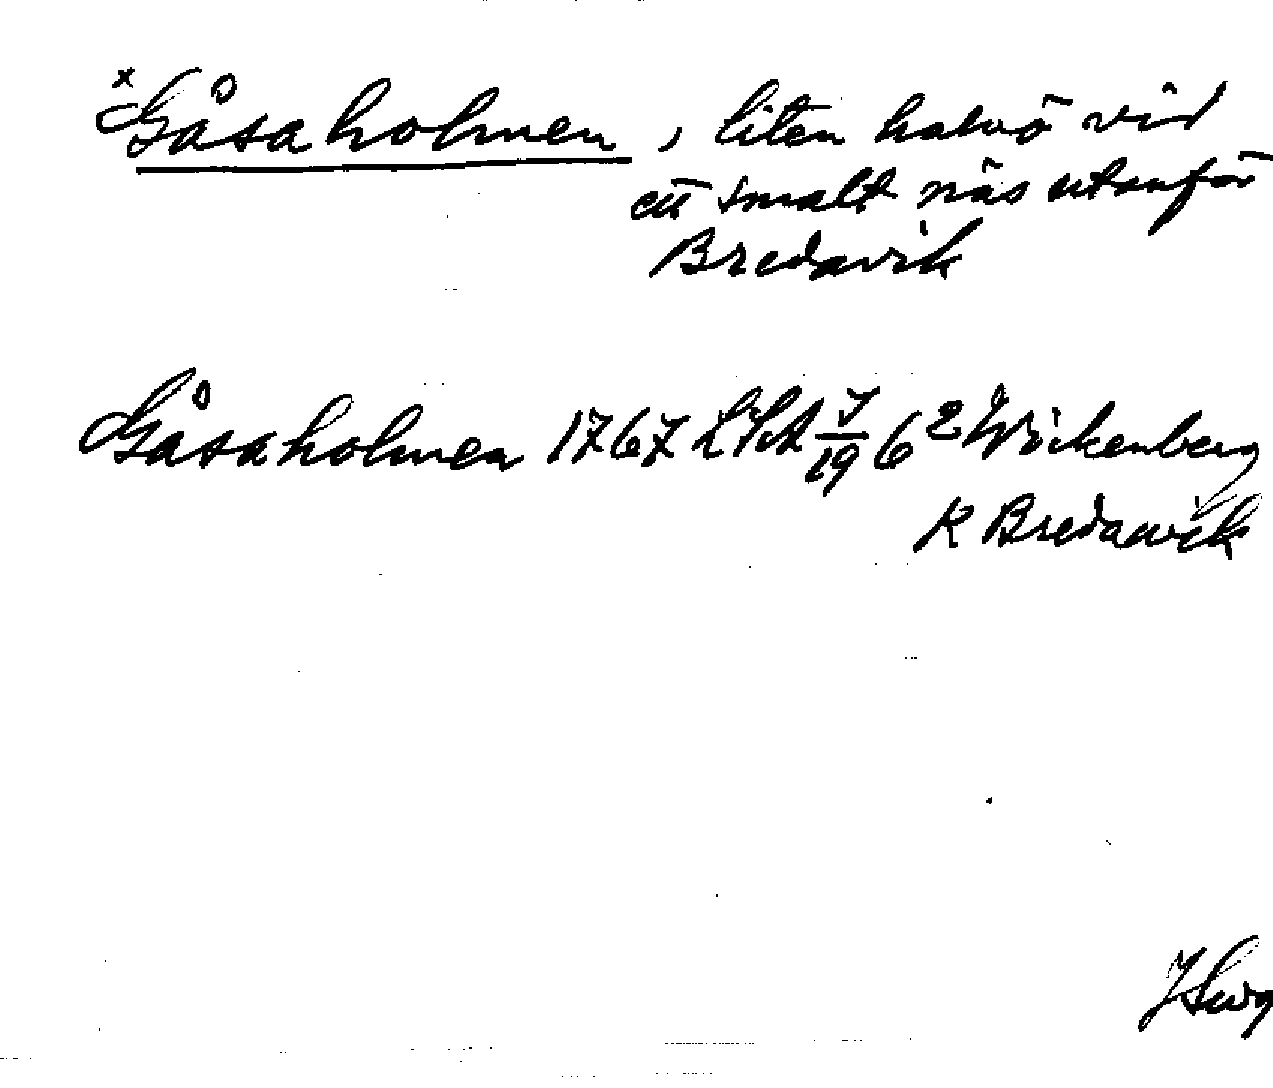 x Gåsaholmen, liten halvö vid
ett smalt näs utanför
Bredavik
Gåsaholmen 1767 LSA 7/19 6 2 Wickenberg
K Bredawik